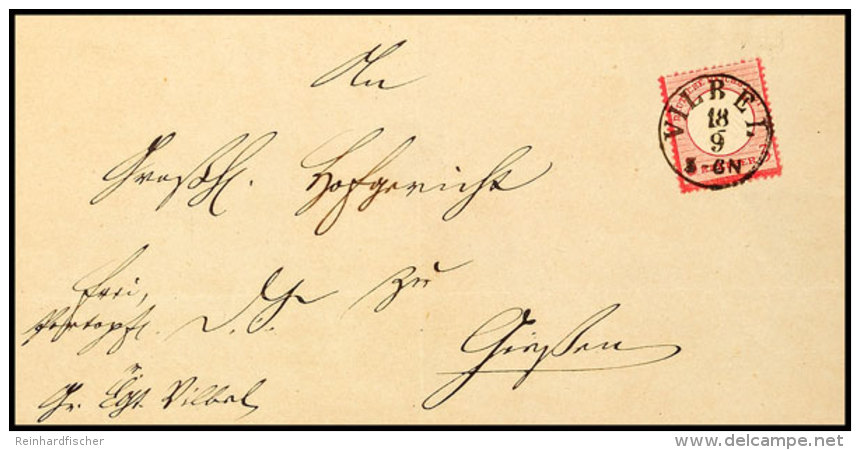 An
Großh. Hofgericht
zu
Gießen
frei,
Portopfl. D. S.
Gr. Lgt. Vilbel
VILBEL
18
9
5-6N
Reinhardfischer
www.delcampe.net